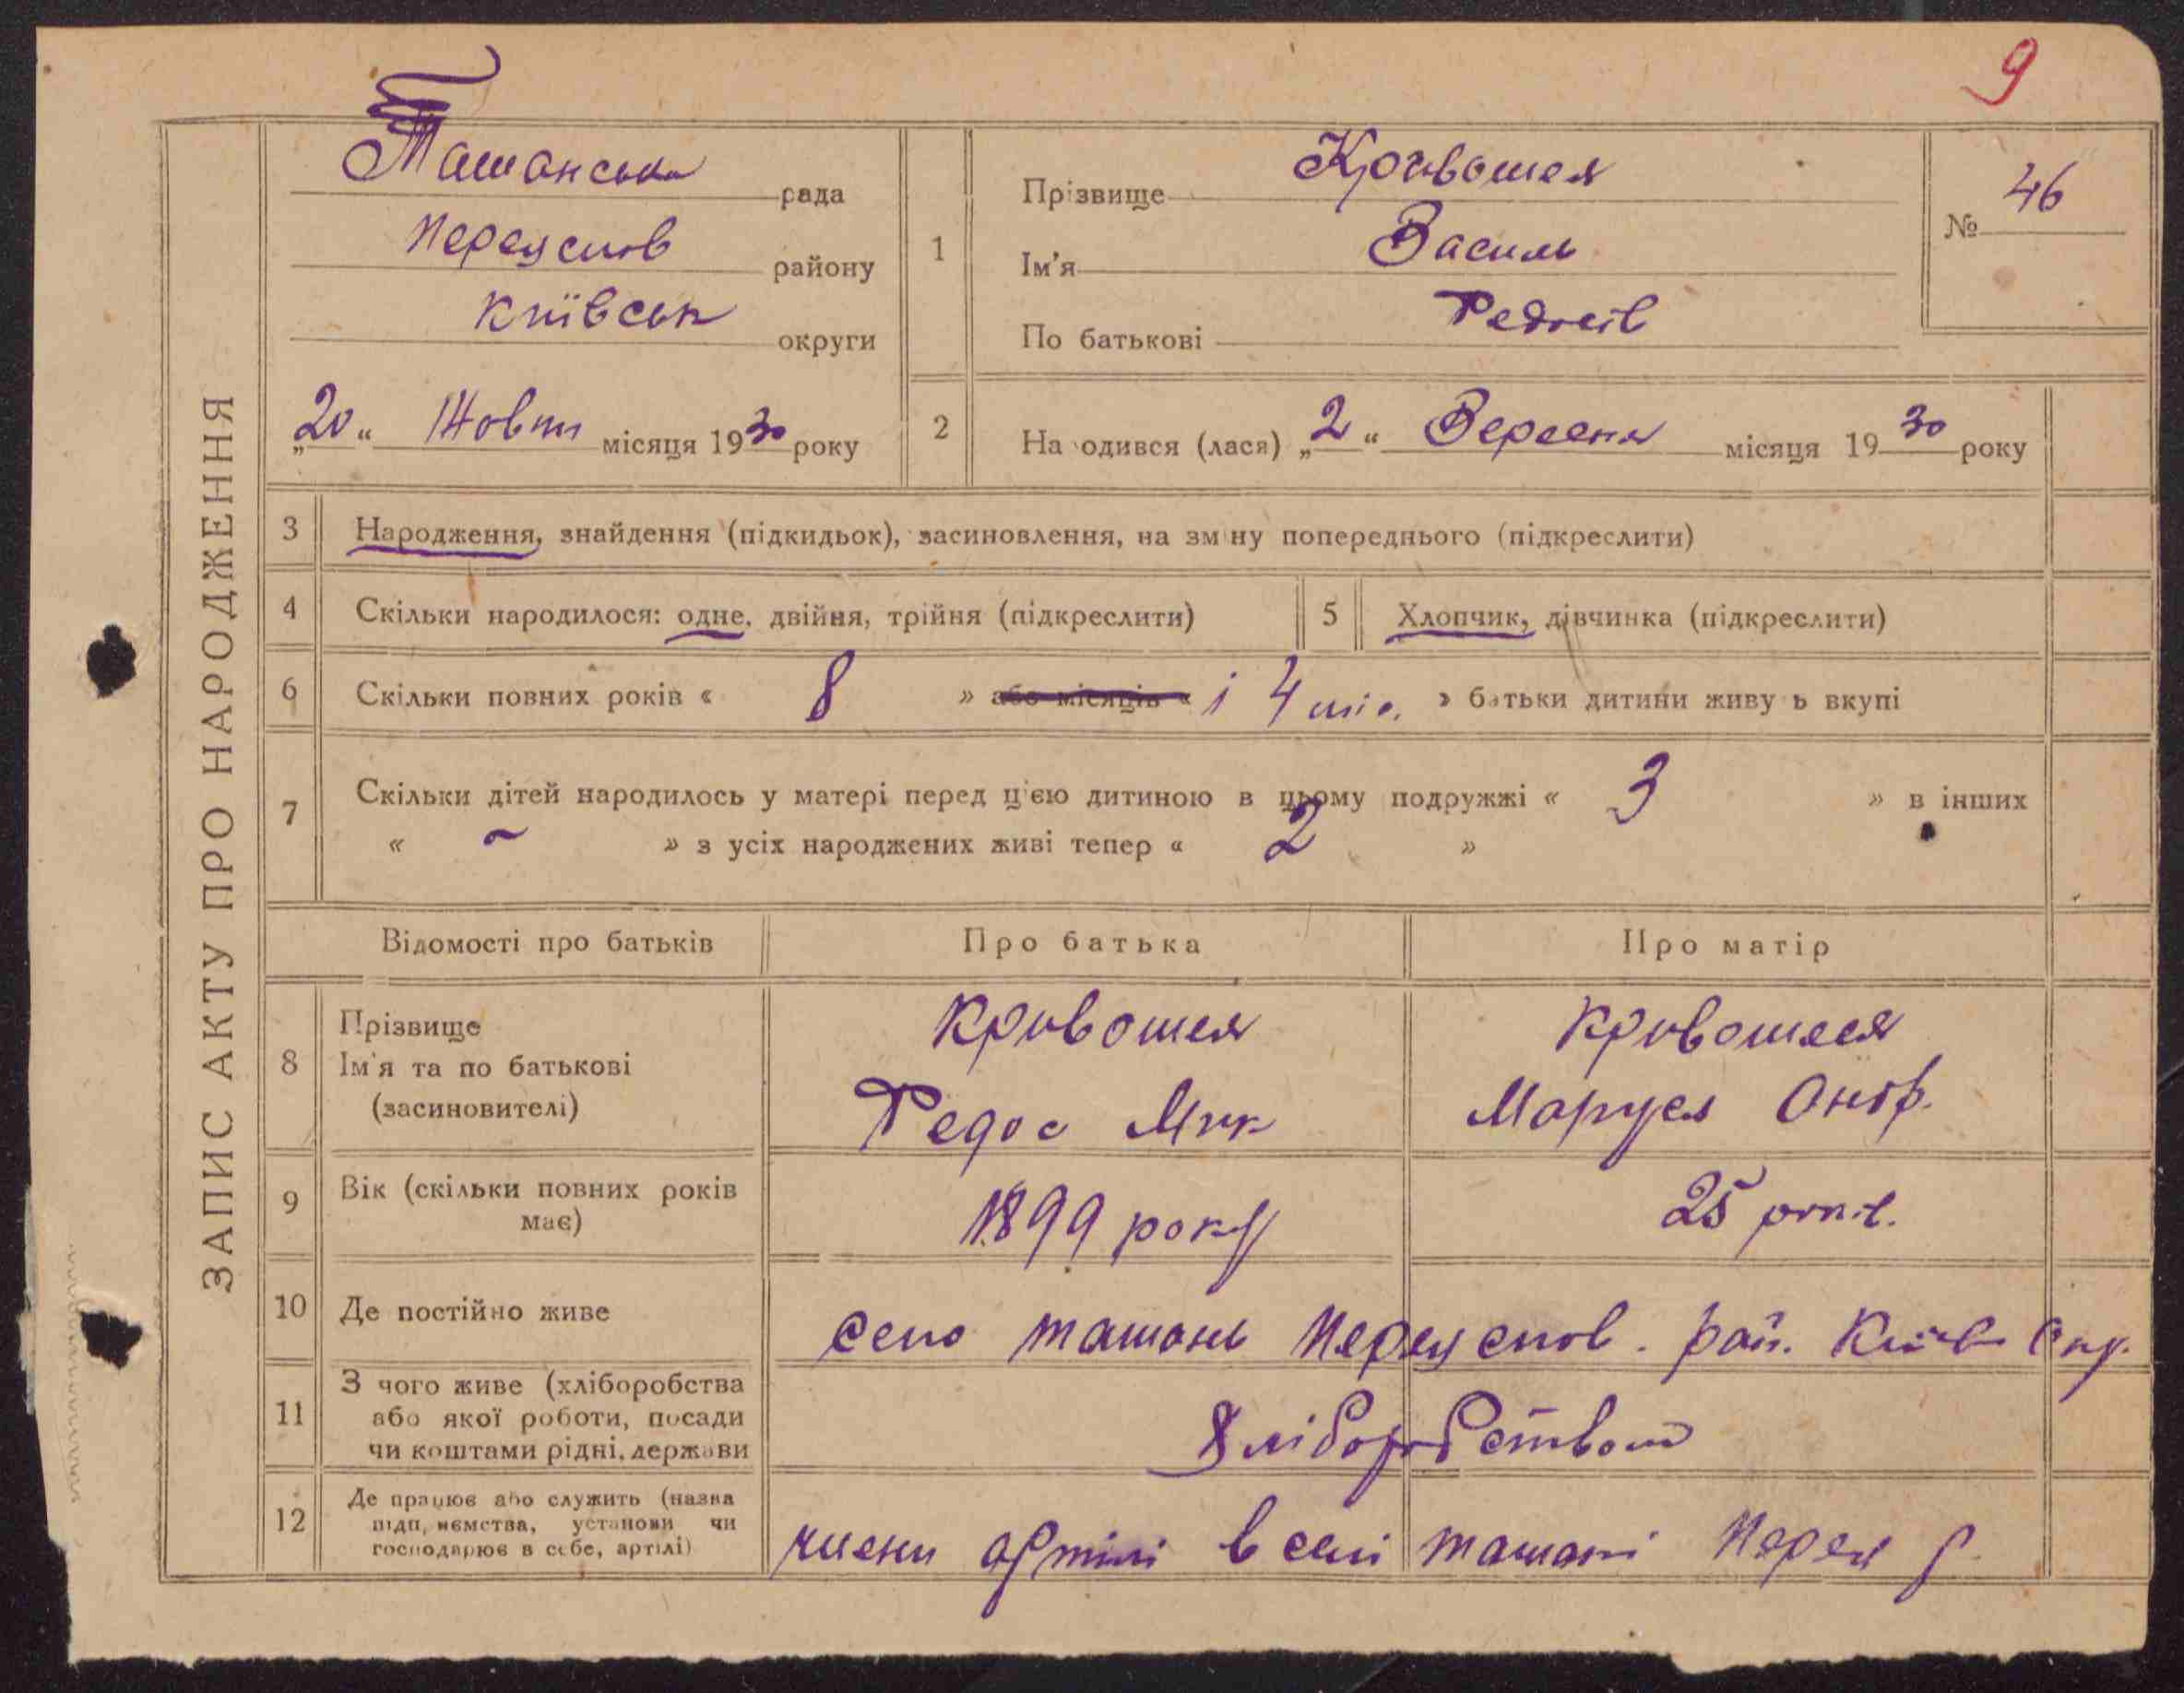 9
ЗАПИС АКТУ ПРО НАРОДЖЕННЯ
Ташанська рада
Переяслов району
Київськ округи
„20“ Жовтн місяця 1930 року
1
Прізвище Кривошея
Ім'я Василь
По батькові Федосів
№ 46
2
На одився (лася) „2“ Вересня місяця 1930 року
3 Народження, знайдення (підкидьок), засиновлення, на зм ну попереднього (підкреслити)
4 Скільки народилося: одне, двійня, трійня (підкреслити)
5 Хлопчик, дівчинка (підкреслити)
6 Скільки повних років « 8 » або місяців « і 4 міс. » батьки дитини живу ь вкупі
7 Скільки дітей народилось у матері перед цією дитиною в цьому подружжі « 3 » в інших
« – » з усіх народжених живі тепер « 2 »
Відомості про батьків Про батька Про матір
8 Прізвище
Ім'я та по батькові
(засиновителі)
Кривошея
Федос Мик
Кривошеея
Маруся Оноф.
9 Вік (скільки повних років
має)
1899 року
25 рокiв.
10 Де постійно живе
село ташань Переяслов. рай. Київ Окр.
11 З чого живе (хліборобства
або якої роботи, посади
чи коштами рідні, держави
Хліборобством
12 Де працює або служить (назва
підп, ємства, установи чи
господарює в себе, артілі)
члени артілі в селі ташані Перея р.